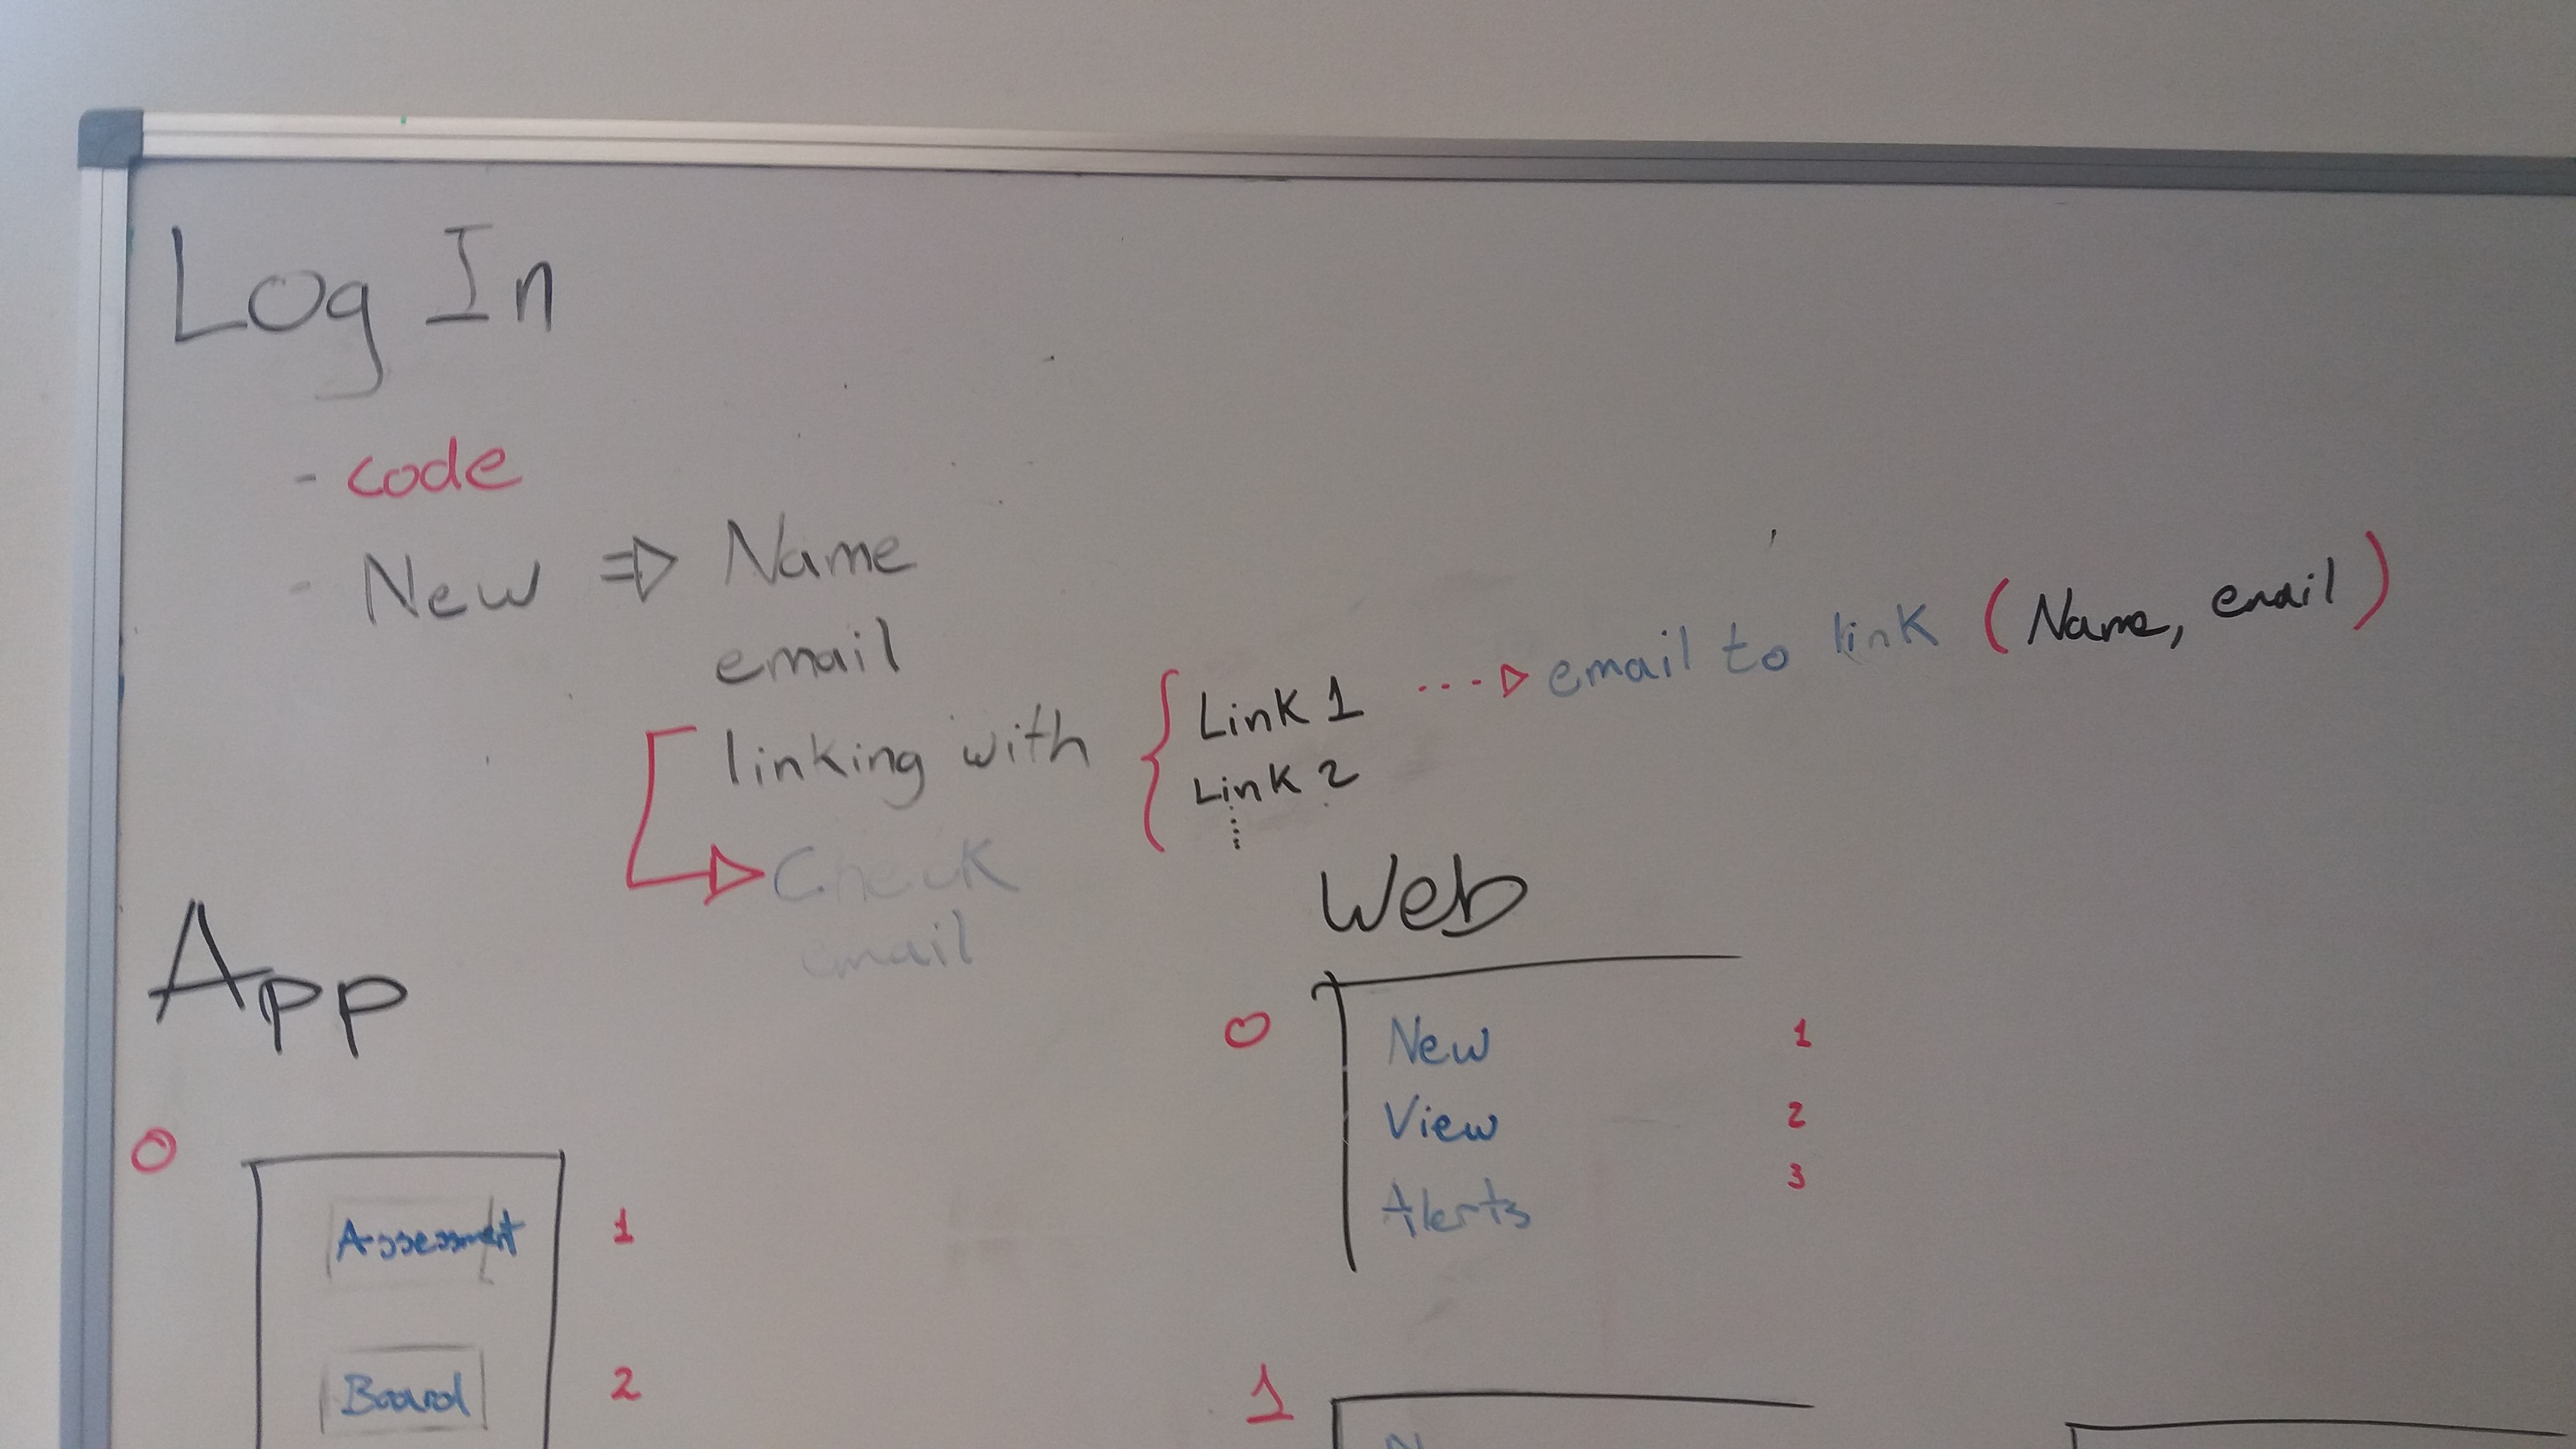 Log In
- code
- New ⇒ Name
email
linking with { Link 1 ...▷ email to link (Name, email)
Link 2
⋮
Check
email
App
0
Assessment 1
Board 2
Web
0
New 1
View 2
Alerts 3
1